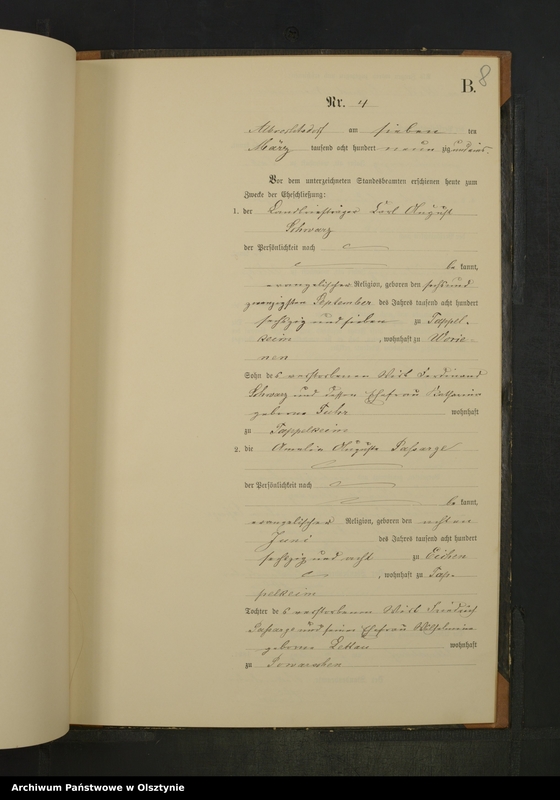 B.
8
Nr. 4
Albrechtsdorf am sieben ten
März tausend acht hundert neunzig und eins.
Vor dem unterzeichneten Standesbeamten erschienen heute zum
Zwecke der Eheschließung:
1. der Landbriefträger Carl August
Schwarz
der Persönlichkeit nach
be kannt,
evangelischer Religion, geboren den sechs und
zwanzigsten September des Jahres tausend acht hundert
sechszig und sieben zu Tappel-
keim, wohnhaft zu Worie-
nen
Sohn des verstorbenen Wirth Ferdinand
Schwarz und dessen Ehefrau
geborne wohnhaft
zu Tappelkeim
2. die Amalie Auguste Passarge
der Persönlichkeit nach
be kannt,
evangelischer Religion, geboren den achten
Juni des Jahres tausend acht hundert
sechszig und acht zu Eichen
, wohnhaft zu Tap-
pelkeim
Tochter des verstorbenen Wirth Friedrich
Passarge und seiner Ehefrau Wilhelmine
geborne wohnhaft
zu
Archiwum Państwowe w Olsztynie